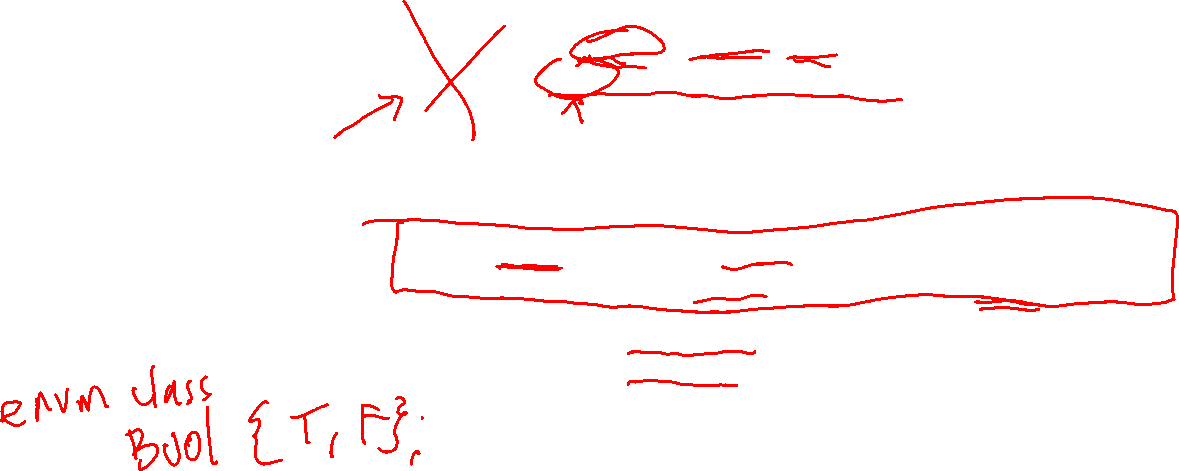 enum class
Bool { T, F};